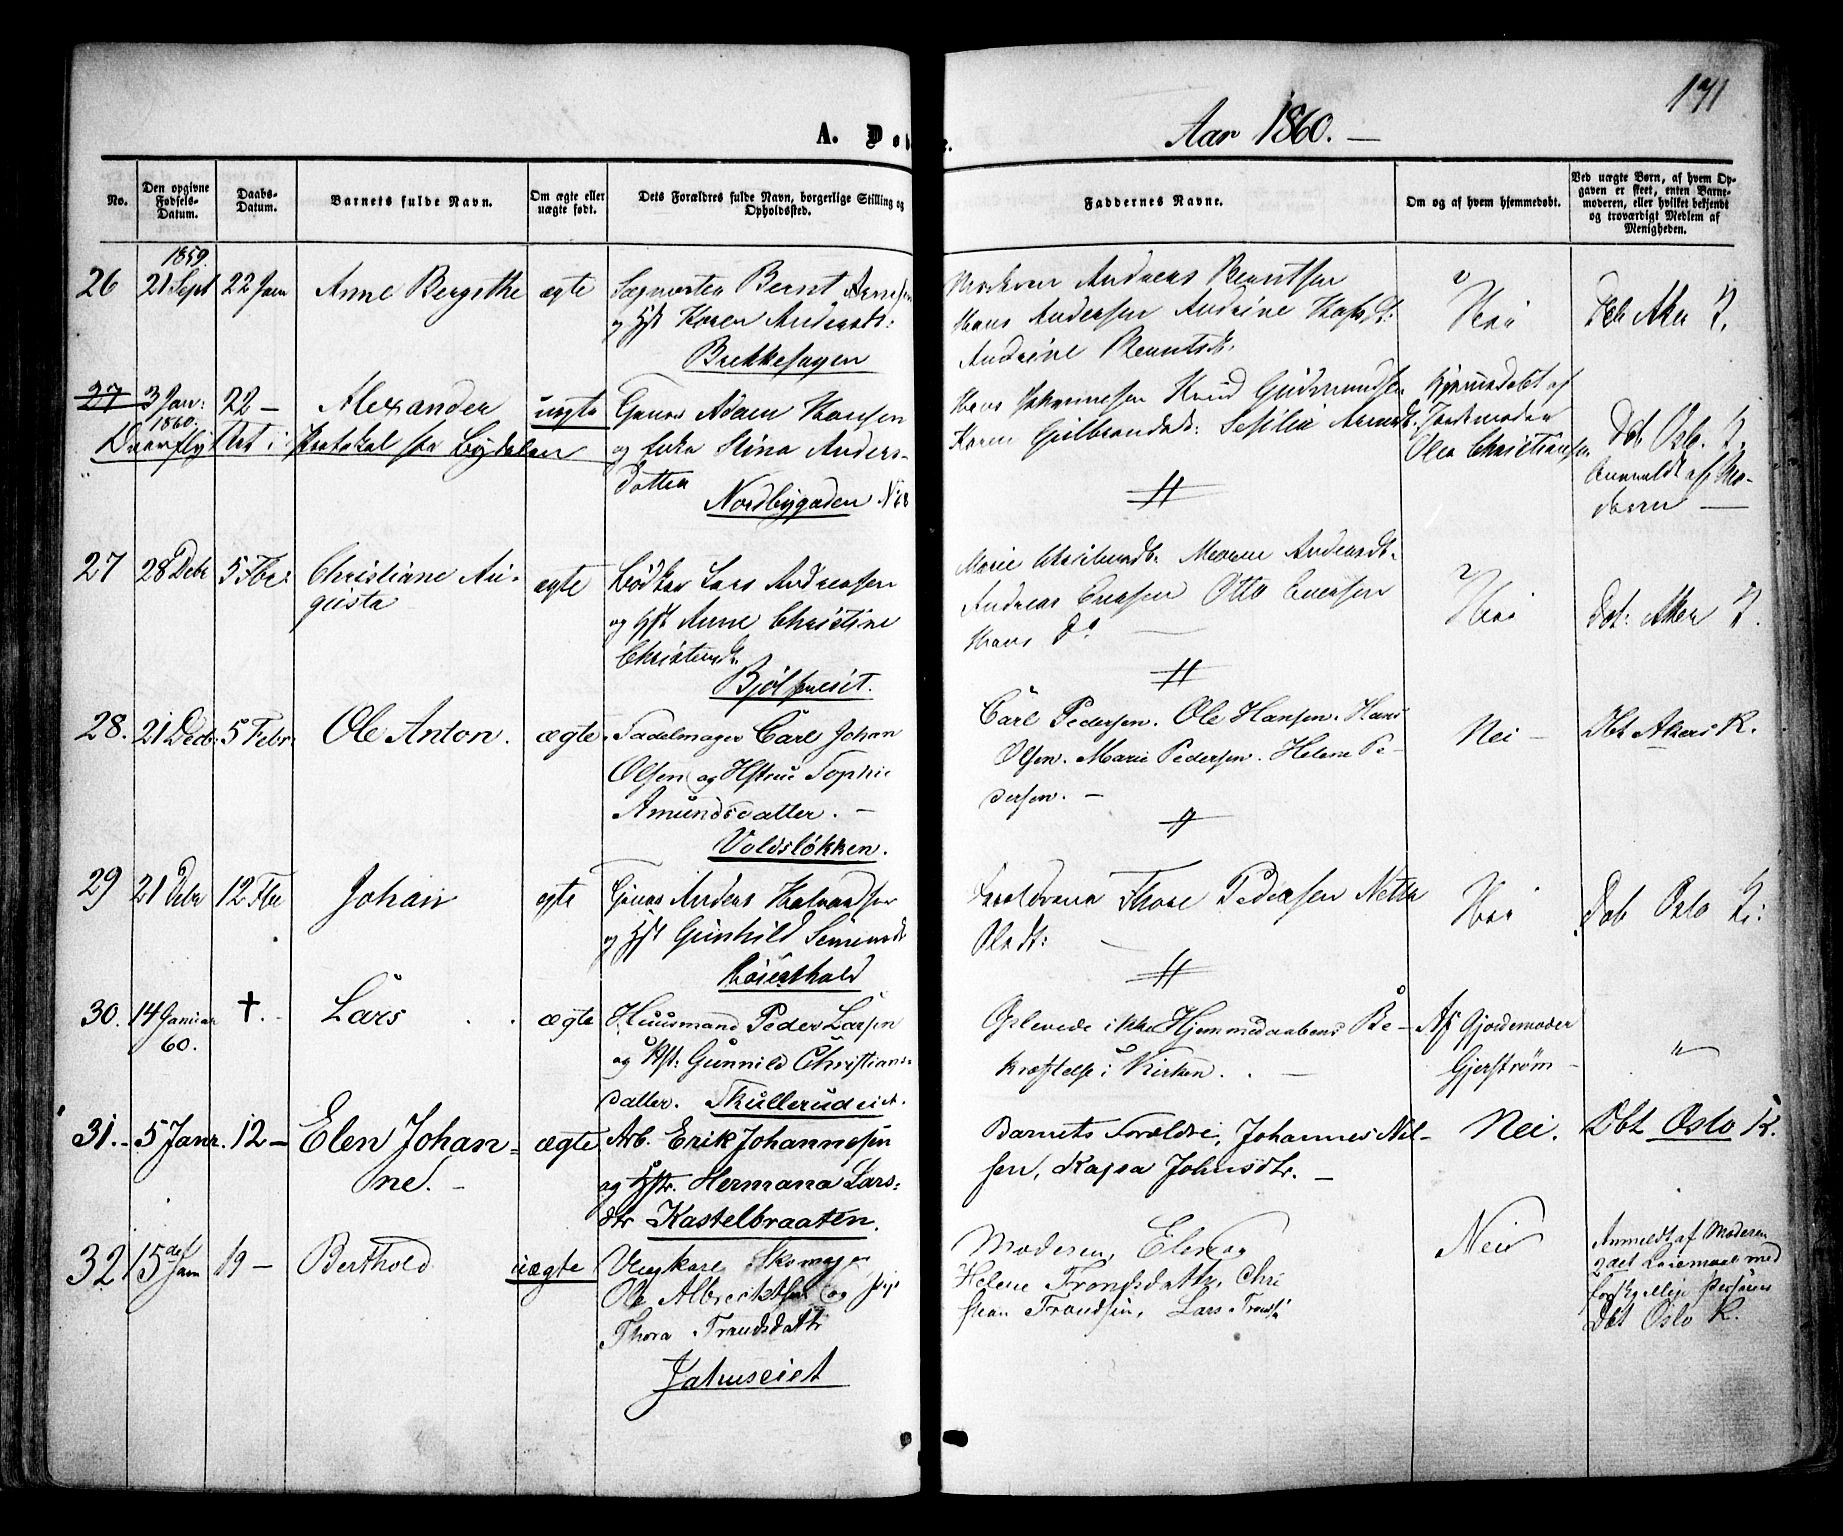 171
A. Døbte.
Aar 1860. —
No.
Den opgivne Fødsels-Datum.
Daabs-Datum.
Barnets fulde Navn.
Om ægte eller uægte født.
Dets Forældres fulde Navn, borgerlige Stilling og Opholdssted.
Faddernes Navne.
Om og af hvem hjemmedøbt.
Ved uægte Børn, af hvem Opgaven er skeet, enten Barnemoderen, eller hvilket bekjendt og troværdigt Medlem af Menigheden.
1859.
26 21 Sept 22 Jan Anne Bergithe ægte Bernt Arnesen
og Hst Karen Andersd:
Brekkesagen
Andreas Berntsen
Hans Andersen Andrine
Andrine Berntsd.
Nei
Døb Aker K.
27 3 Jan: 1860. 22 — Alexander uægte Gaas Adam Hansen
og Enke Stina Anders-
datter
Nordbygaden N 68
Overflyttet i Protokol for Bydelen
Hans Johannesen Knud Gudmundsen
Karen Gulbrandsd: Sesilie
Hjemmedøbt af
Jordmoder
Olea Christiansen
Døb. Oslo. K.
Anmeldt af Mo-
deren —
27 28 Debr 5 Fbr: Christiane Au-
gusta
ægte Bødker Lars Andreassen
og Hst Anne Christine
Bjølseneiet.
Marie Maren Andersdt.
Andreas Otto
Hans Do —
Nei
Døb: Aker K.
28. 21 Decb. 5 Febr. Ole Anton. ægte. Sadelmager Carl Johan
Olsen og Hstrue Sophie
Amundsdatter. —
Voldsløkken.
Carl Pedersen. Ole Hansen. Hans
Olsen. Marie Pedersen. Helene Pe-
dersen. —
Nei —
Dbt Akers K.
29 21 Debr 12 Fbr Johan ægte Anders Halvorsen
og Hst Gunhild
Thore Pedersen Netta
Olsdt:
Nei
Døb Oslo K:
30. 14 Januar 60. †. Lars ægte Huusmand Peder Larsen
og Hst: Gunnild Christians-
datter. Skullerudeiet.
Oplevede ikke Hjemmedaabens Be-
kræftelse i Kirken. —
Af Gjordemoder
Gjerstrøm —
"
31. 5 Janr. 12 — Elen Johan-
ne. —
ægte Arb. Erik Johannesen
og Hstr. Hermana Lars-
dtr Kastelbraaten.
Barnets Forældre, Johannes Nil-
sen, Kajsa Johnsdtr. —
Nei.
Dbt Oslo K.
32 15det Jan 19 — Berthold uægte Ungkarl Skomager
Ole Albrechtsen og Pige
Thora Trondsdattr
Jahuseiet
Moderen, Elen og
Helene Trondsdattr, Chri
stian Trondsen, Lars Tronds
Nei
Anmeldt af Moderen
2det Leiermaal med
forskjellige Personer
Dbt Oslo K.